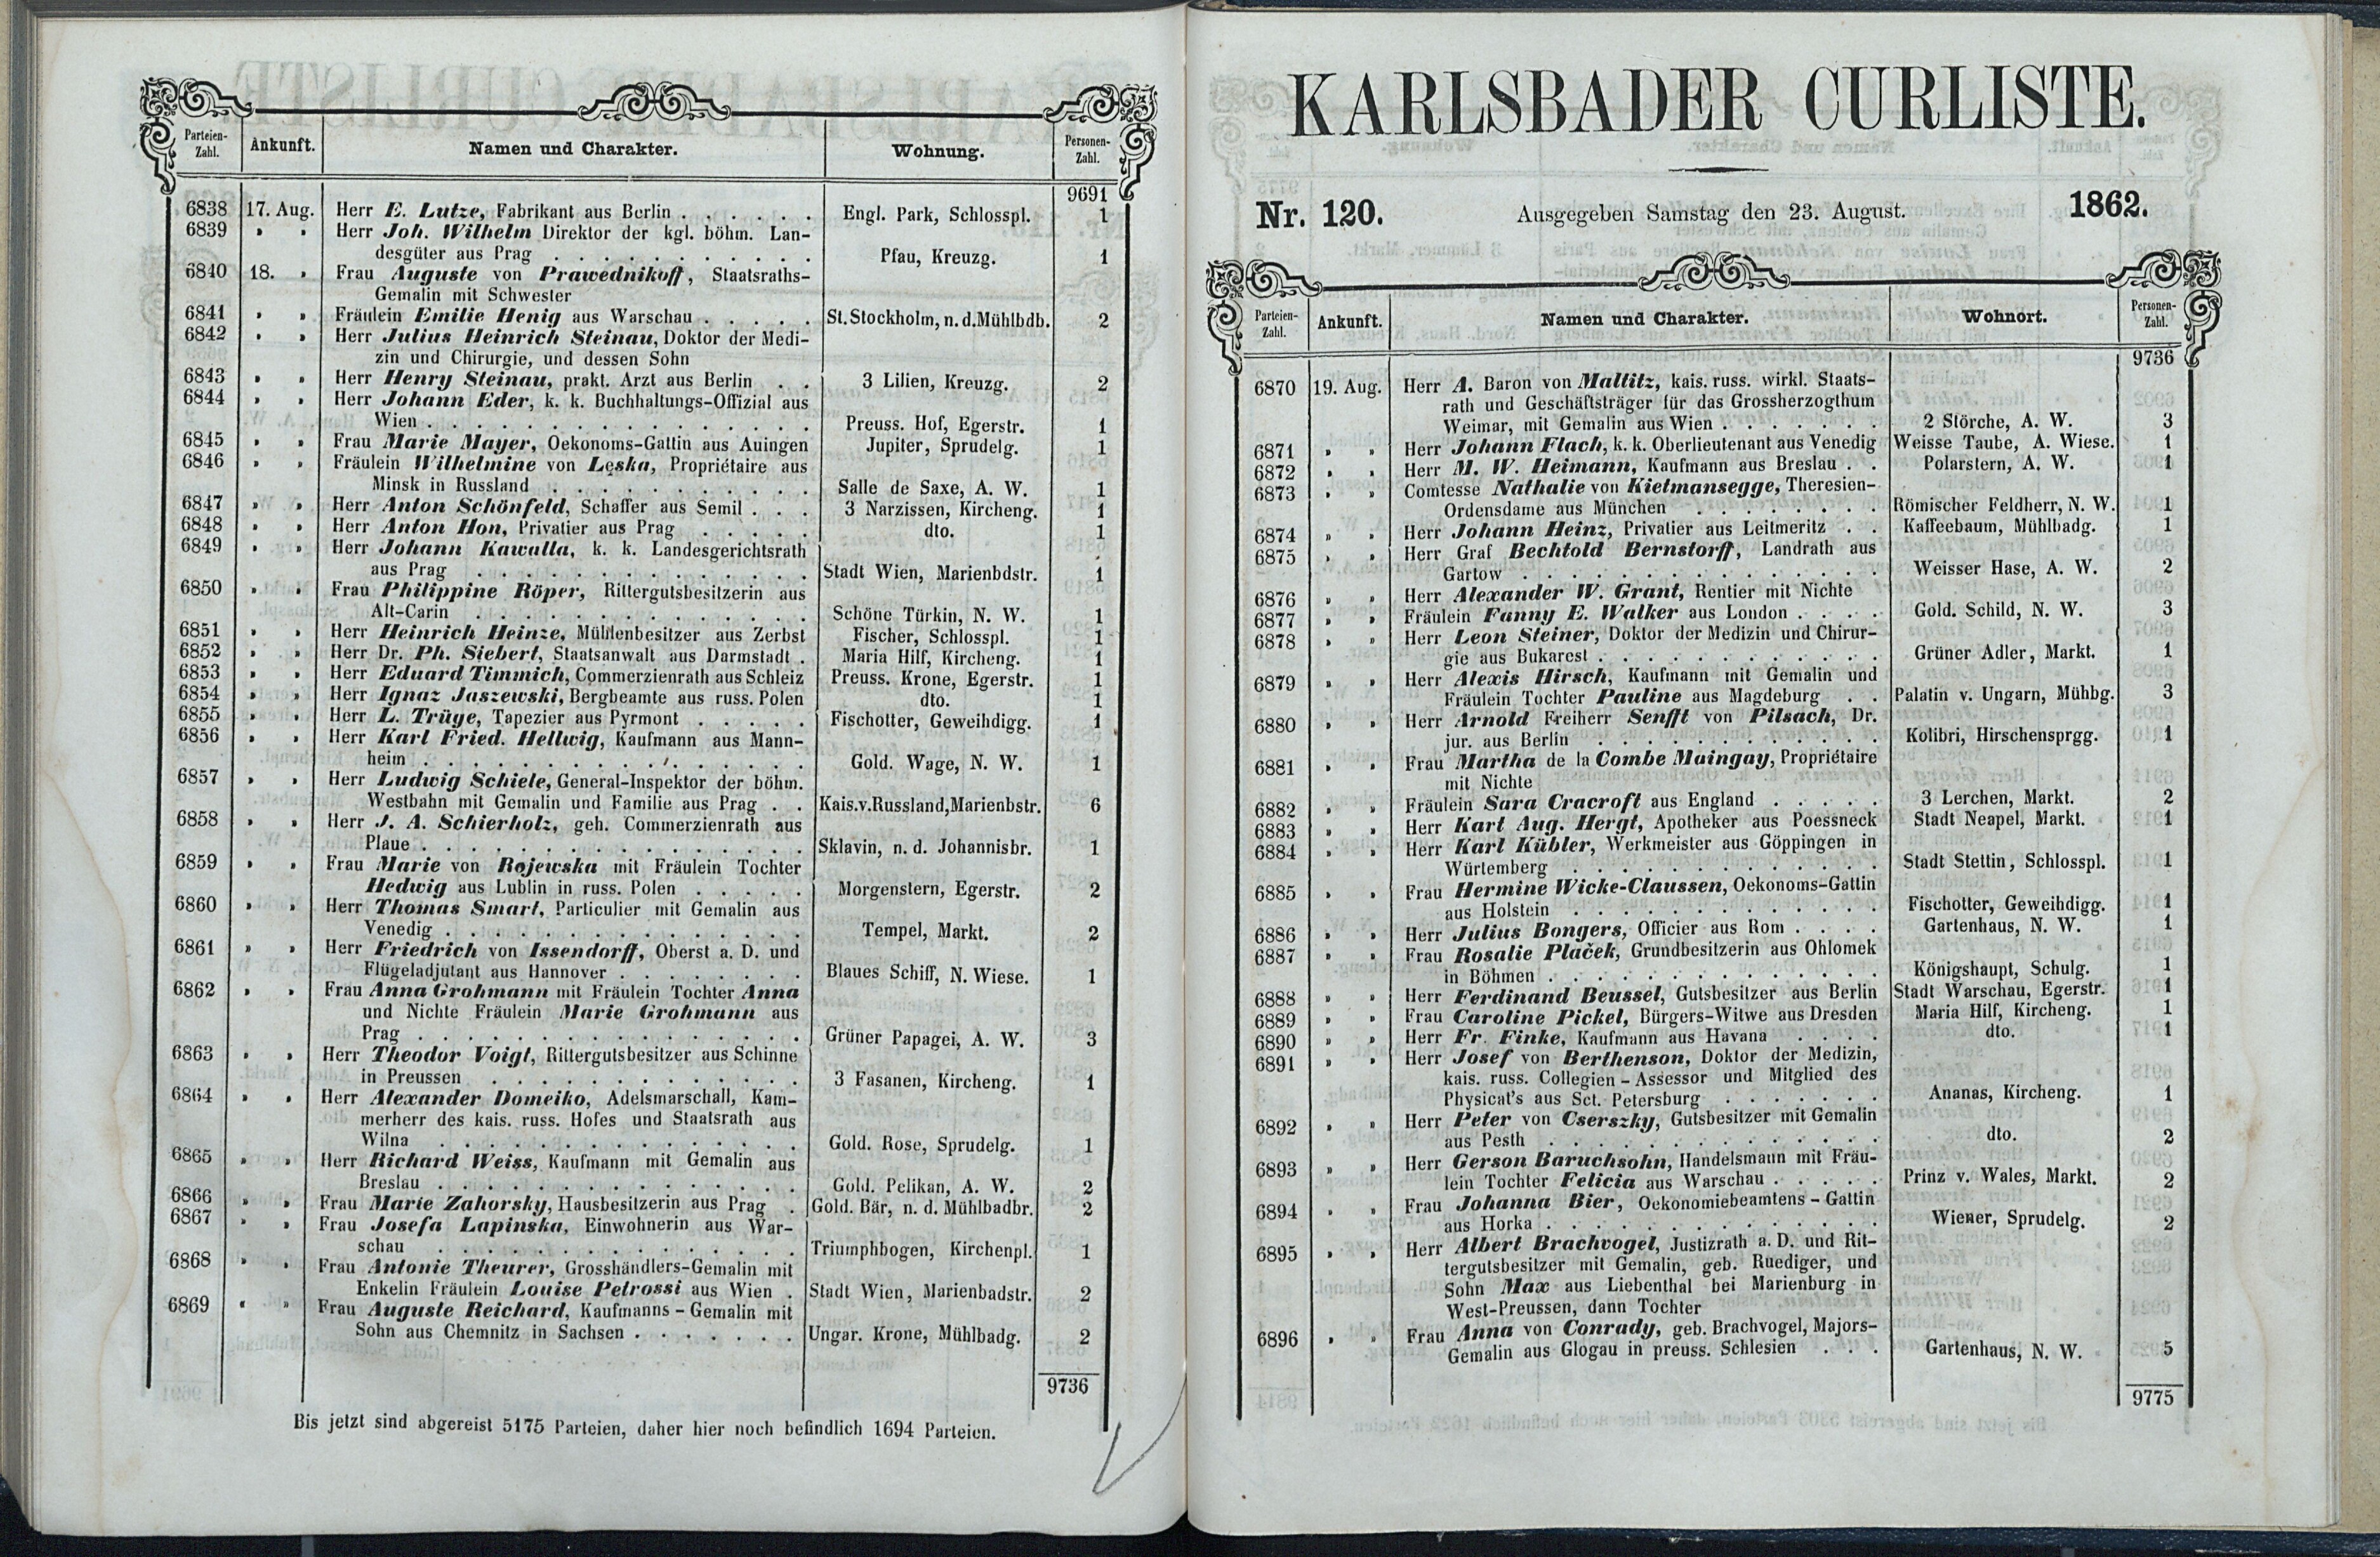 Parteien-Zahl. Ankunft. Namen und Charakter. Wohnung. Personen-Zahl.
9691
6838 17. Aug. Herr E. Lutze, Fabrikant aus Berlin . . . . . . Engl. Park, Schlosspl. 1
6839 " " Herr Joh. Wilhelm Direktor der kgl. böhm. Lan-
desgüter aus Prag . . . . . . . . . . . Pfau, Kreuzg. 1
6840 18. " Frau Auguste von Prawednikoff, Staatsraths-
Gemalin mit Schwester
6841 " " Fräulein Emilie Henig aus Warschau . . . . . St. Stockholm, n. d. Mühlbdb. 2
6842 " " Herr Julius Heinrich Steinau, Doktor der Medi-
zin und Chirurgie, und dessen Sohn
6843 " " Herr Henry Steinau, prakt. Arzt aus Berlin . . 3 Lilien, Kreuzg. 2
6844 " " Herr Johann Eder, k. k. Buchhaltungs-Offizial aus
Wien . . . . . . . . . . . . . . . . Preuss. Hof, Egerstr. 1
6845 " " Frau Marie Mayer, Oekonoms-Gattin aus Auingen Jupiter, Sprudelg. 1
6846 " " Fräulein Wilhelmine von Leska, Propriétaire aus
Minsk in Russland . . . . . . . . . . . Salle de Saxe, A. W. 1
6847 " " Herr Anton Schönfeld, Schaffer aus Semil . . . 3 Narzissen, Kircheng. 1
6848 " " Herr Anton Hon, Privatier aus Prag . . . . . dto. 1
6849 " " Herr Johann Kawalla, k. k. Landesgerichtsrath
aus Prag . . . . . . . . . . . . . . Stadt Wien, Marienbdstr. 1
6850 " " Frau Philippine Röper, Rittergutsbesitzerin aus
Alt-Carin . . . . . . . . . . . . . . Schöne Türkin, N. W. 1
6851 " " Herr Heinrich Heinze, Mühlenbesitzer aus Zerbst Fischer, Schlosspl. 1
6852 " " Herr Dr. Ph. Siebert, Staatsanwalt aus Darmstadt . Maria Hilf, Kircheng. 1
6853 " " Herr Eduard Timmich, Commerzienrath aus Schleiz Preuss. Krone, Egerstr. 1
6854 " " Herr Ignaz Jaszewski, Bergbeamte aus russ. Polen dto. 1
6855 " " Herr L. Trüge, Tapezier aus Pyrmont . . . . . Fischotter, Geweihdigg. 1
6856 " " Herr Karl Fried. Hellwig, Kaufmann aus Mann-
heim . . . . . . . . . . . . . . . . Gold. Wage, N. W. 1
6857 " " Herr Ludwig Schiele, General-Inspektor der böhm.
Westbahn mit Gemalin und Familie aus Prag . . Kais.v.Russland,Marienbstr. 6
6858 " " Herr J. A. Schierholz, geh. Commerzienrath aus
Plaue . . . . . . . . . . . . . . . . Sklavin, n. d. Johannisbr. 1
6859 " " Frau Marie von Rojewska mit Fräulein Tochter
Hedwig aus Lublin in russ. Polen . . . . . Morgenstern, Egerstr. 2
6860 " " Herr Thomas Smart, Particulier mit Gemalin aus
Venedig . . . . . . . . . . . . . . . Tempel, Markt. 2
6861 " " Herr Friedrich von Issendorff, Oberst a. D. und
Flügeladjutant aus Hannover . . . . . . . . Blaues Schiff, N. Wiese. 1
6862 " " Frau Anna Grohmann mit Fräulein Tochter Anna
und Nichte Fräulein Marie Grohmann aus
Prag . . . . . . . . . . . . . . . . Grüner Papagei, A. W. 3
6863 " " Herr Theodor Voigt, Rittergutsbesitzer aus Schinne
in Preussen . . . . . . . . . . . . . 3 Fasanen, Kircheng. 1
6864 " " Herr Alexander Domeiko, Adelsmarschall, Kam-
merherr des kais. russ. Hofes und Staatsrath aus
Wilna . . . . . . . . . . . . . . . Gold. Rose, Sprudelg. 1
6865 " " Herr Richard Weiss, Kaufmann mit Gemalin aus
Breslau . . . . . . . . . . . . . . . Gold. Pelikan, A. W. 2
6866 " " Frau Marie Zahorsky, Hausbesitzerin aus Prag . Gold. Bär, n. d. Mühlbadbr. 2
6867 " " Frau Josefa Lapinska, Einwohnerin aus War-
schau . . . . . . . . . . . . . . . Triumphbogen, Kirchenpl. 1
6868 " " Frau Antonie Theurer, Grosshändlers-Gemalin mit
Enkelin Fräulein Louise Petrossi aus Wien . Stadt Wien, Marienbadstr. 2
6869 " " Frau Auguste Reichard, Kaufmanns - Gemalin mit
Sohn aus Chemnitz in Sachsen . . . . . . . Ungar. Krone, Mühlbadg. 2
9736
Bis jetzt sind abgereist 5175 Parteien, daher hier noch befindlich 1694 Parteien.
KARLSBADER CURLISTE.
Nr. 120. Ausgegeben Samstag den 23. August. 1862.
Parteien-Zahl. Ankunft. Namen und Charakter. Wohnort. Personen-Zahl.
9736
6870 19. Aug. Herr A. Baron von Maltitz, kais. russ. wirkl. Staats-
rath und Geschäftsträger für das Grossherzogthum
Weimar, mit Gemalin aus Wien . . . . . . . 2 Störche, A. W. 3
6871 " " Herr Johann Flach, k. k. Oberlieutenant aus Venedig Weisse Taube, A. Wiese. 1
6872 " " Herr M. W. Heimann, Kaufmann aus Breslau . . Polarstern, A. W. 1
6873 " " Comtesse Nathalie von Kietmansegge, Theresien-
Ordensdame aus München . . . . . . . . Römischer Feldherr, N. W. 1
6874 " " Herr Johann Heinz, Privatier aus Leitmeritz . . Kaffeebaum, Mühlbadg. 1
6875 " " Herr Graf Bechtold Bernstorff, Landrath aus
Gartow . . . . . . . . . . . . . . . Weisser Hase, A. W. 2
6876 " " Herr Alexander W. Grant, Rentier mit Nichte
6877 " " Fräulein Fanny E. Walker aus London . . . . Gold. Schild, N. W. 3
6878 " " Herr Leon Steiner, Doktor der Medizin und Chirur-
gie aus Bukarest . . . . . . . . . . . . Grüner Adler, Markt. 1
6879 " " Herr Alexis Hirsch, Kaufmann mit Gemalin und
Fräulein Tochter Pauline aus Magdeburg . . Palatin v. Ungarn, Mühbg. 3
6880 " " Herr Arnold Freiherr Senfft von Pilsach, Dr.
jur. aus Berlin . . . . . . . . . . . . Kolibri, Hirschensprgg. 1
6881 " " Frau Martha de la Combe Maingay, Propriétaire
mit Nichte
6882 " " Fräulein Sara Cracroft aus England . . . . . 3 Lerchen, Markt. 2
6883 " " Herr Karl Aug. Hergt, Apotheker aus Poessneck Stadt Neapel, Markt. 1
6884 " " Herr Karl Kübler, Werkmeister aus Göppingen in
Würtemberg . . . . . . . . . . . . . Stadt Stettin, Schlosspl. 1
6885 " " Frau Hermine Wicke-Claussen, Oekonoms-Gattin
aus Holstein . . . . . . . . . . . . . Fischotter, Geweihdigg. 1
6886 " " Herr Julius Bongers, Officier aus Rom . . . . Gartenhaus, N. W. 1
6887 " " Frau Rosalie Plaček, Grundbesitzerin aus Ohlomek
in Böhmen . . . . . . . . . . . . . . Königshaupt, Schulg. 1
6888 " " Herr Ferdinand Beussel, Gutsbesitzer aus Berlin Stadt Warschau, Egerstr. 1
6889 " " Frau Caroline Pickel, Bürgers-Witwe aus Dresden Maria Hilf, Kircheng. 1
6890 " " Herr Fr. Finke, Kaufmann aus Havana . . . . dto. 1
6891 " " Herr Josef von Berthenson, Doktor der Medizin,
kais. russ. Collegien - Assessor und Mitglied des
Physicat's aus Sct. Petersburg . . . . . . . Ananas, Kircheng. 1
6892 " " Herr Peter von Cserszky, Gutsbesitzer mit Gemalin
aus Pesth . . . . . . . . . . . . . . dto. 2
6893 " " Herr Gerson Baruchsohn, Handelsmann mit Fräu-
lein Tochter Felicia aus Warschau . . . . . Prinz v. Wales, Markt. 2
6894 " " Frau Johanna Bier, Oekonomiebeamtens - Gattin
aus Horka . . . . . . . . . . . . . . Wiener, Sprudelg. 2
6895 " " Herr Albert Brachvogel, Justizrath a. D. und Rit-
tergutsbesitzer mit Gemalin, geb. Ruediger, und
Sohn Max aus Liebenthal bei Marienburg in
West-Preussen, dann Tochter
6896 " " Frau Anna von Conrady, geb. Brachvogel, Majors-
Gemalin aus Glogau in preuss. Schlesien . . . Gartenhaus, N. W. 5
9775